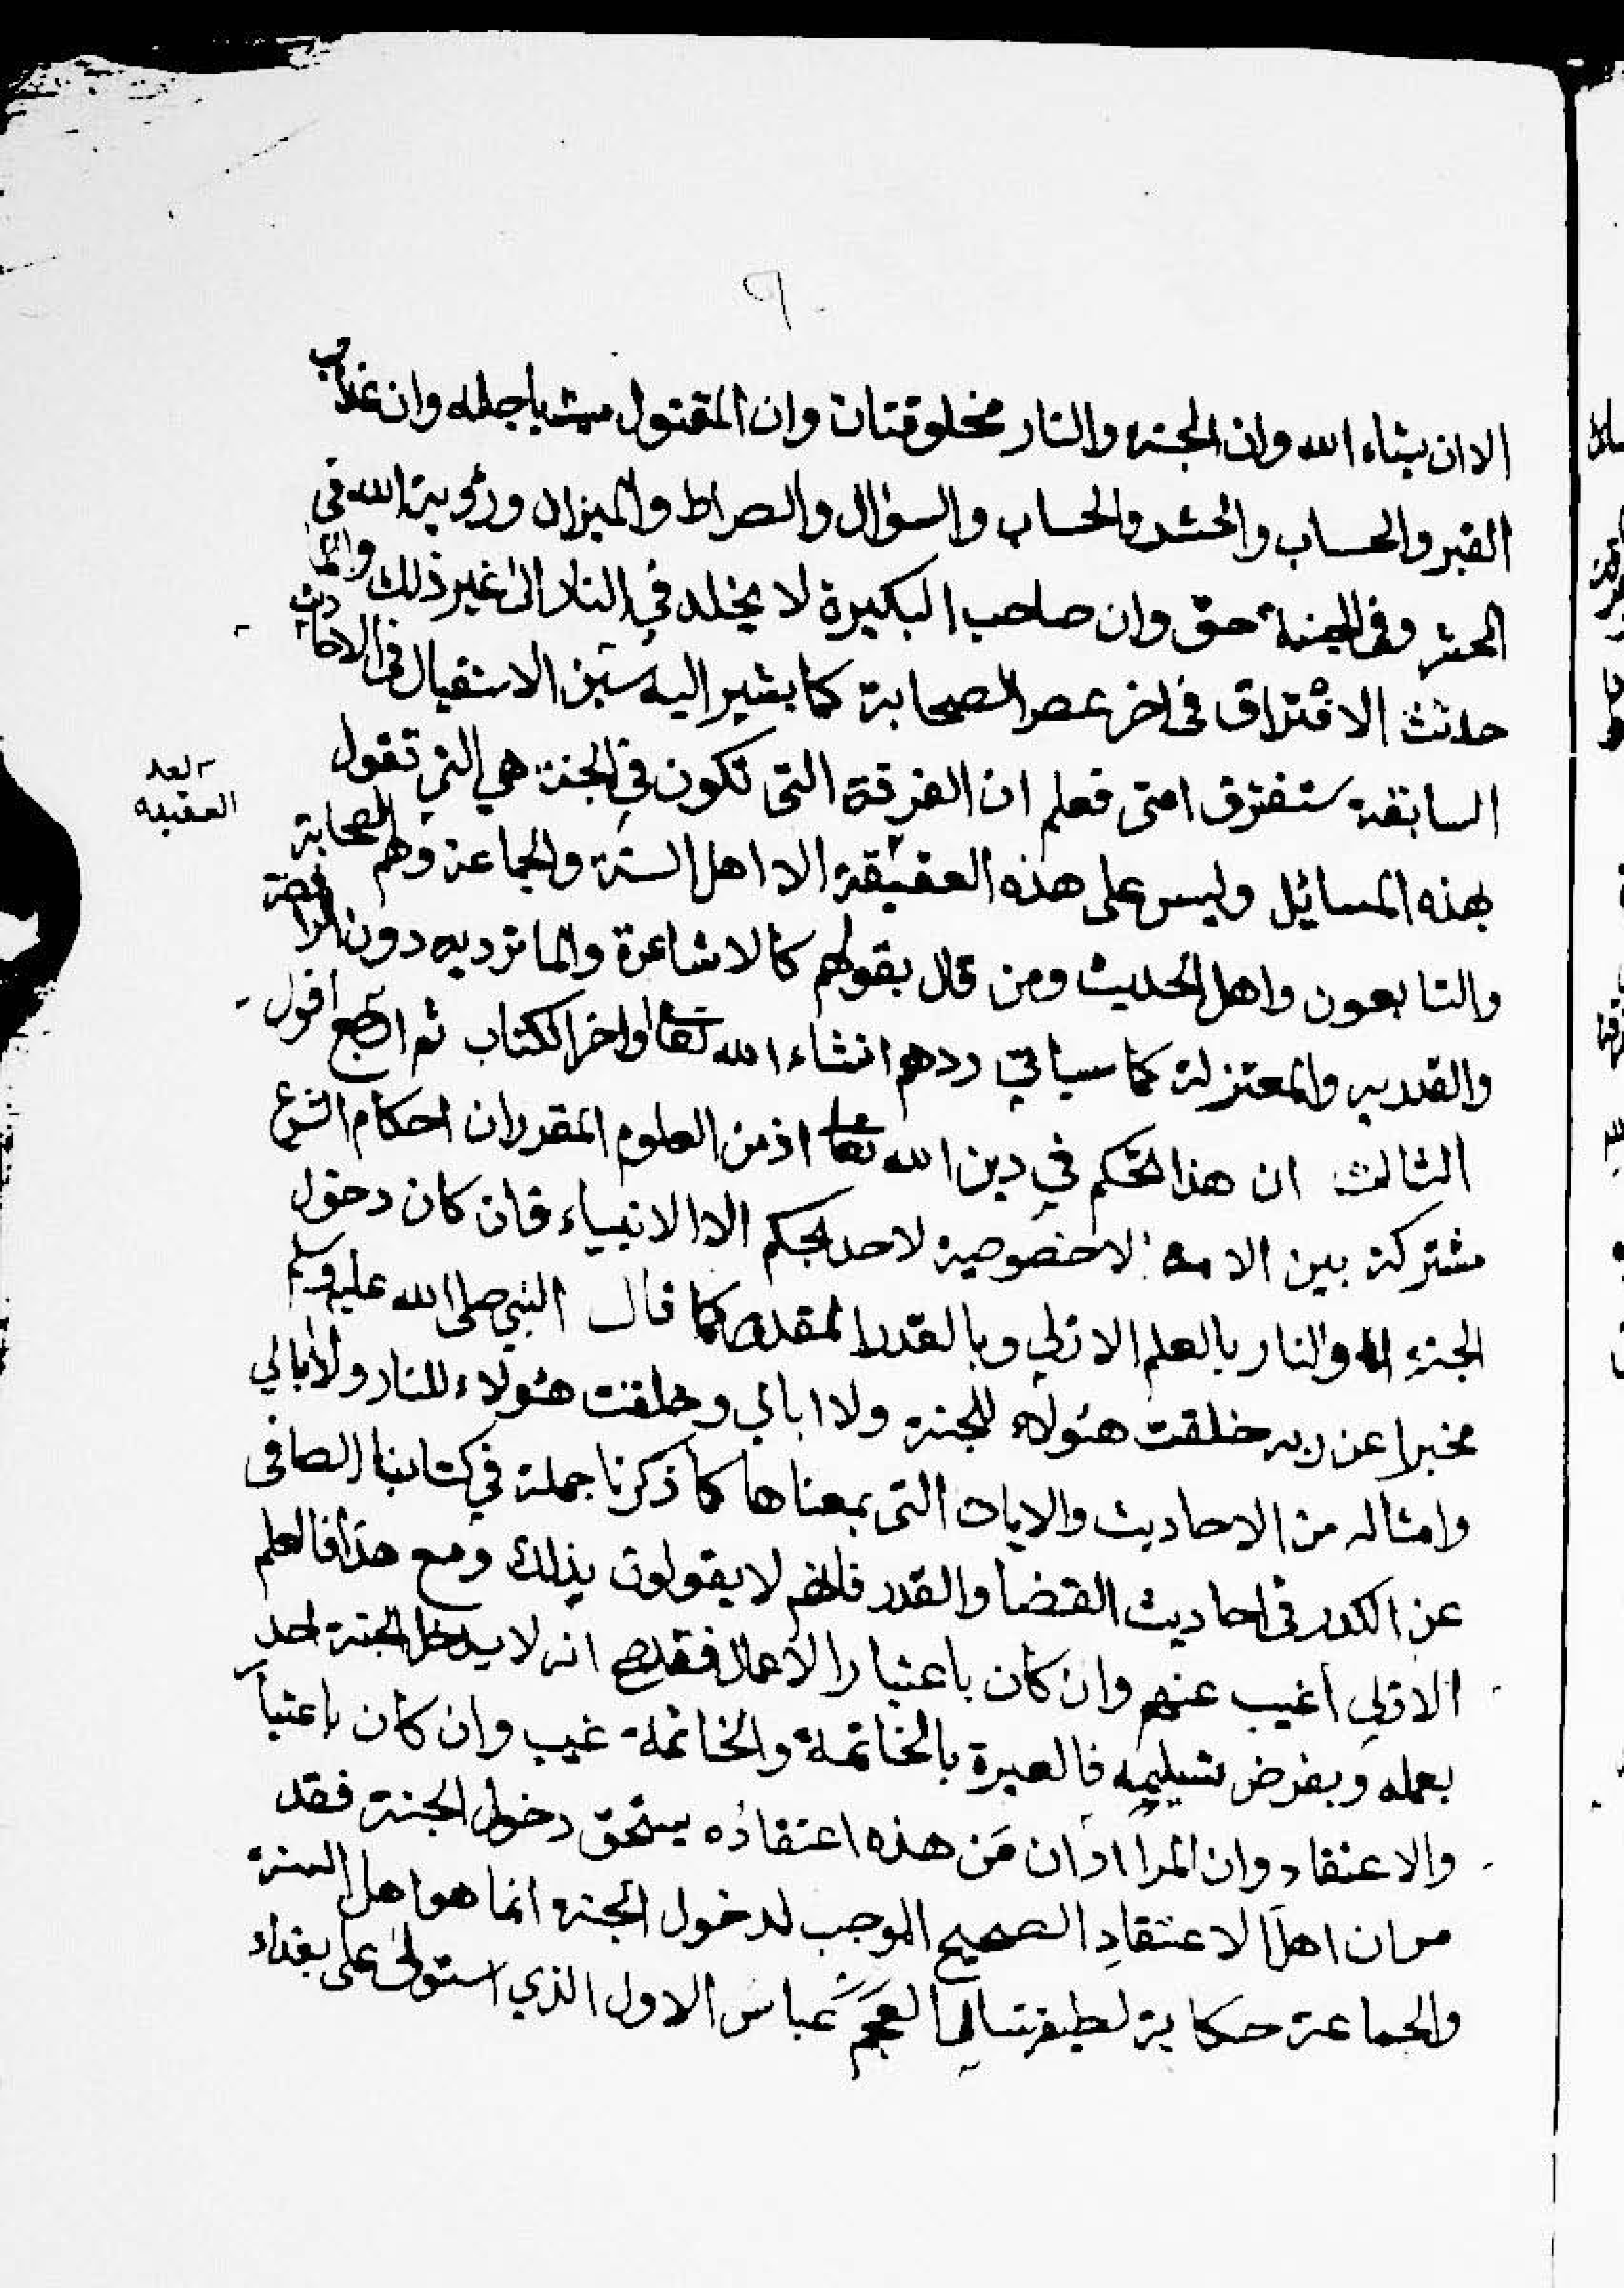 ٩
الا ان يشاء الله وان الجنة والنار مخلوقتان وان المقتول ميت باجله وان عذاب
القبر والحساب والحشر والحساب والسؤال والصراط والميزان ورؤية الله في
المحشر وفي الجنة حق وان صاحب الكبيرة لا يخلد في النار الى غير ذلك وانما
حدثت الافتراق في اخر عصر الصحابة كما يشير اليه سين الاستقبال في الاحاديث
السابقة ستفترق امتي فعلم ان الفرقة التي تكون في الجنة هي التي تقول
بهذه المسائل وليس على هذه العقيقة الا اهل السنة والجماعة وهم الصحابة
العقيده
والتابعون واهل الحديث ومن قال بقولهم كالاشاعرة والماتردية دون الرافضة
والقدرية والمعتزلة كما سياتي ردهم انشاء الله تعا اواخر الكتاب ثم اقول
الثالث ان هذا تحكم في دين الله تعا اذ من العلوم المقرر ان احكام الشرع
مشتركة بين الامة لا خصوصية لاحد بحكم الا الانبياء فان كان دخول
الجنة والنار بالعلم الازلي وبالقدر المقدر كما قال النبي صلى الله عليه وسلم
مخبرا عن ربه خلقت هئولاء للجنة ولا ابالي وخلقت هئولاء للنار ولا ابالي
وامثاله من الاحاديث والايات التي بمعناها كما ذكرنا جملة في كتابنا الصافي
عن الكدر في احاديث القضا والقدر فانهم لا يقولون بذلك ومع هذا فالعلم
الازلي اغيب عنهم وان كان باعتبار الاعمال فقد صح انه لا يدخل الجنة احد
بعمله وبفرض تسليمه فالعبرة بالخاتمة والخاتمة غيب وان كان باعتبار
والاعتقاد وان المراد ان من هذه اعتقاده يستحق دخول الجنة فقد
مر ان اهل الاعتقاد الصحيح الموجب لدخول الجنة انما هو اهل السنة
والجماعة حكاية لطيفة العجم عباس الاول الذي استولى على بغداد